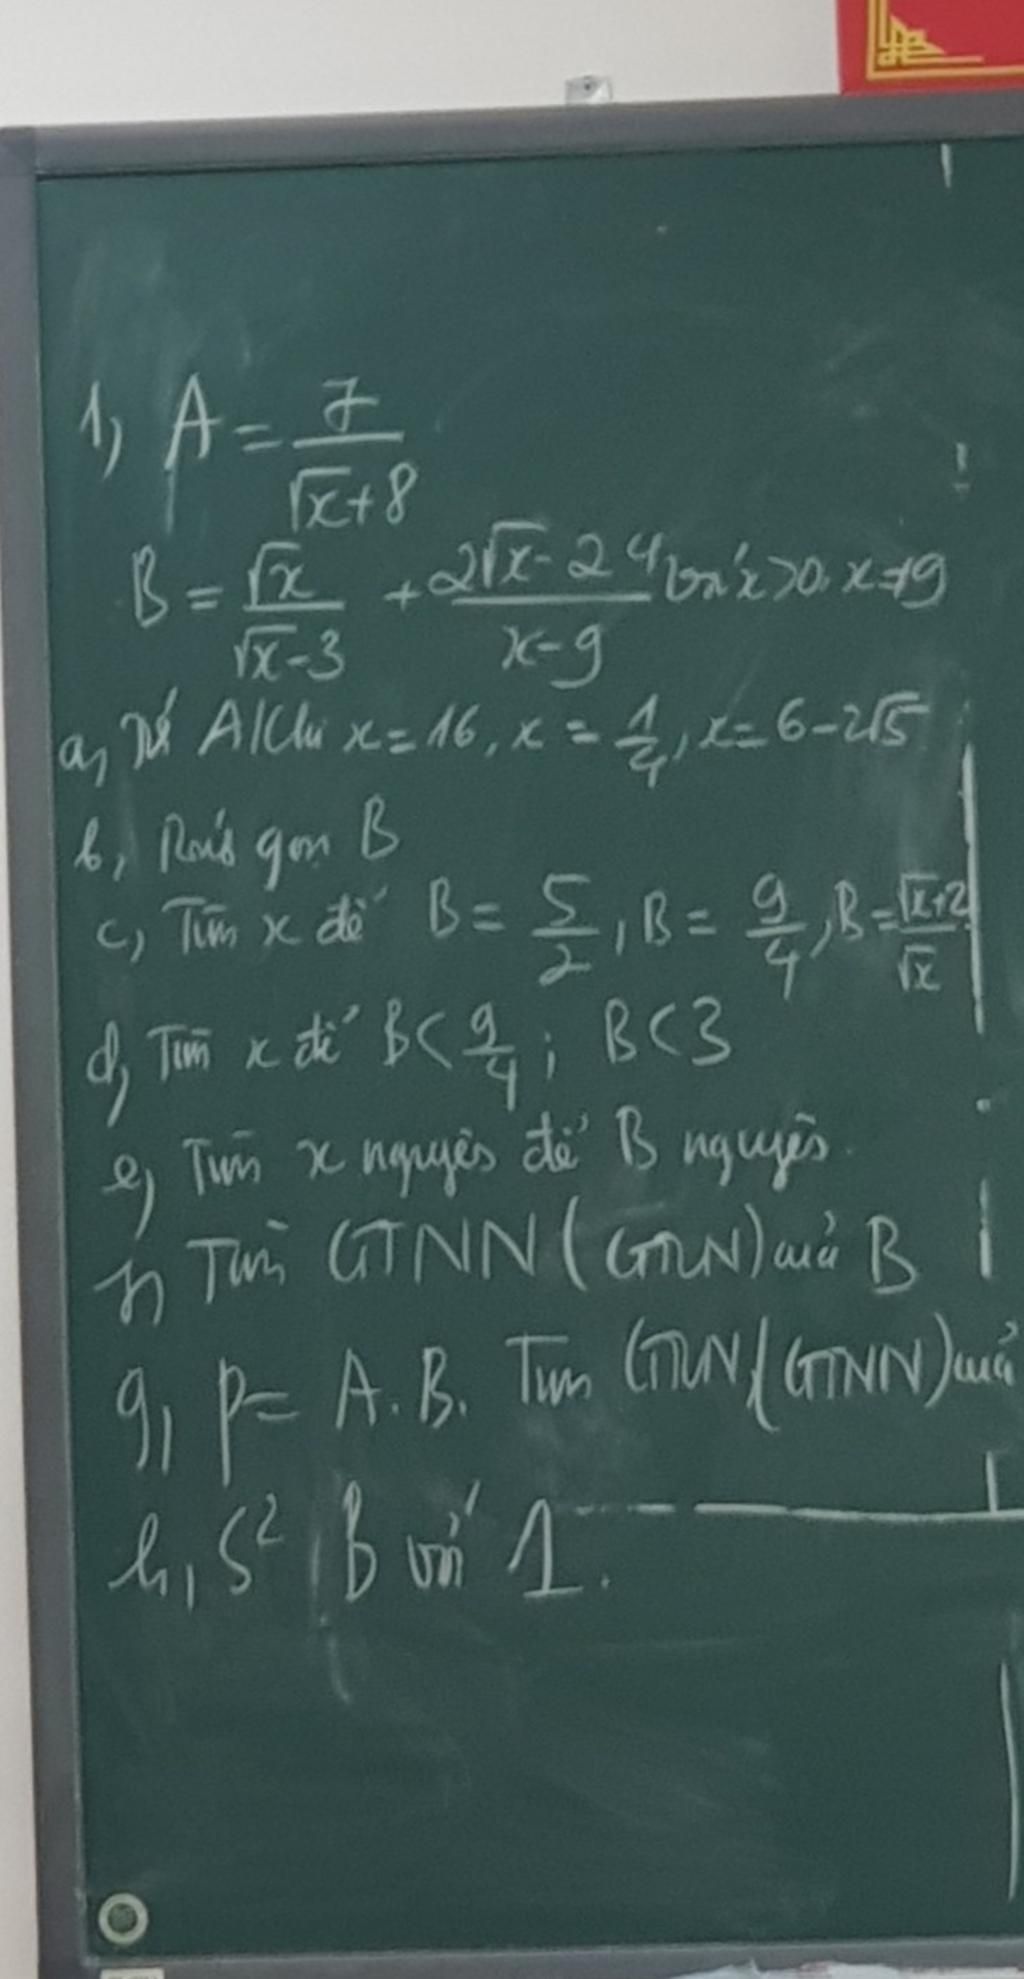 1, A = 7/(√x+8)
B = √x/(√x-3) + (2√x-24)/(x-9) với x>0, x≠9
a, Tính A khi x=16, x = 1/4, x=6-2√5
b, Rút gọn B
c, Tìm x để B = 5/2, B = 9/4, B = (√x+2)/√x
d, Tìm x để B < 9/4; B < 3
e, Tìm x nguyên để B nguyên.
f, Tìm GTNN (GTLN) của B
g, P = A.B. Tìm GTLN (GTNN) của
h, S² B với 1.